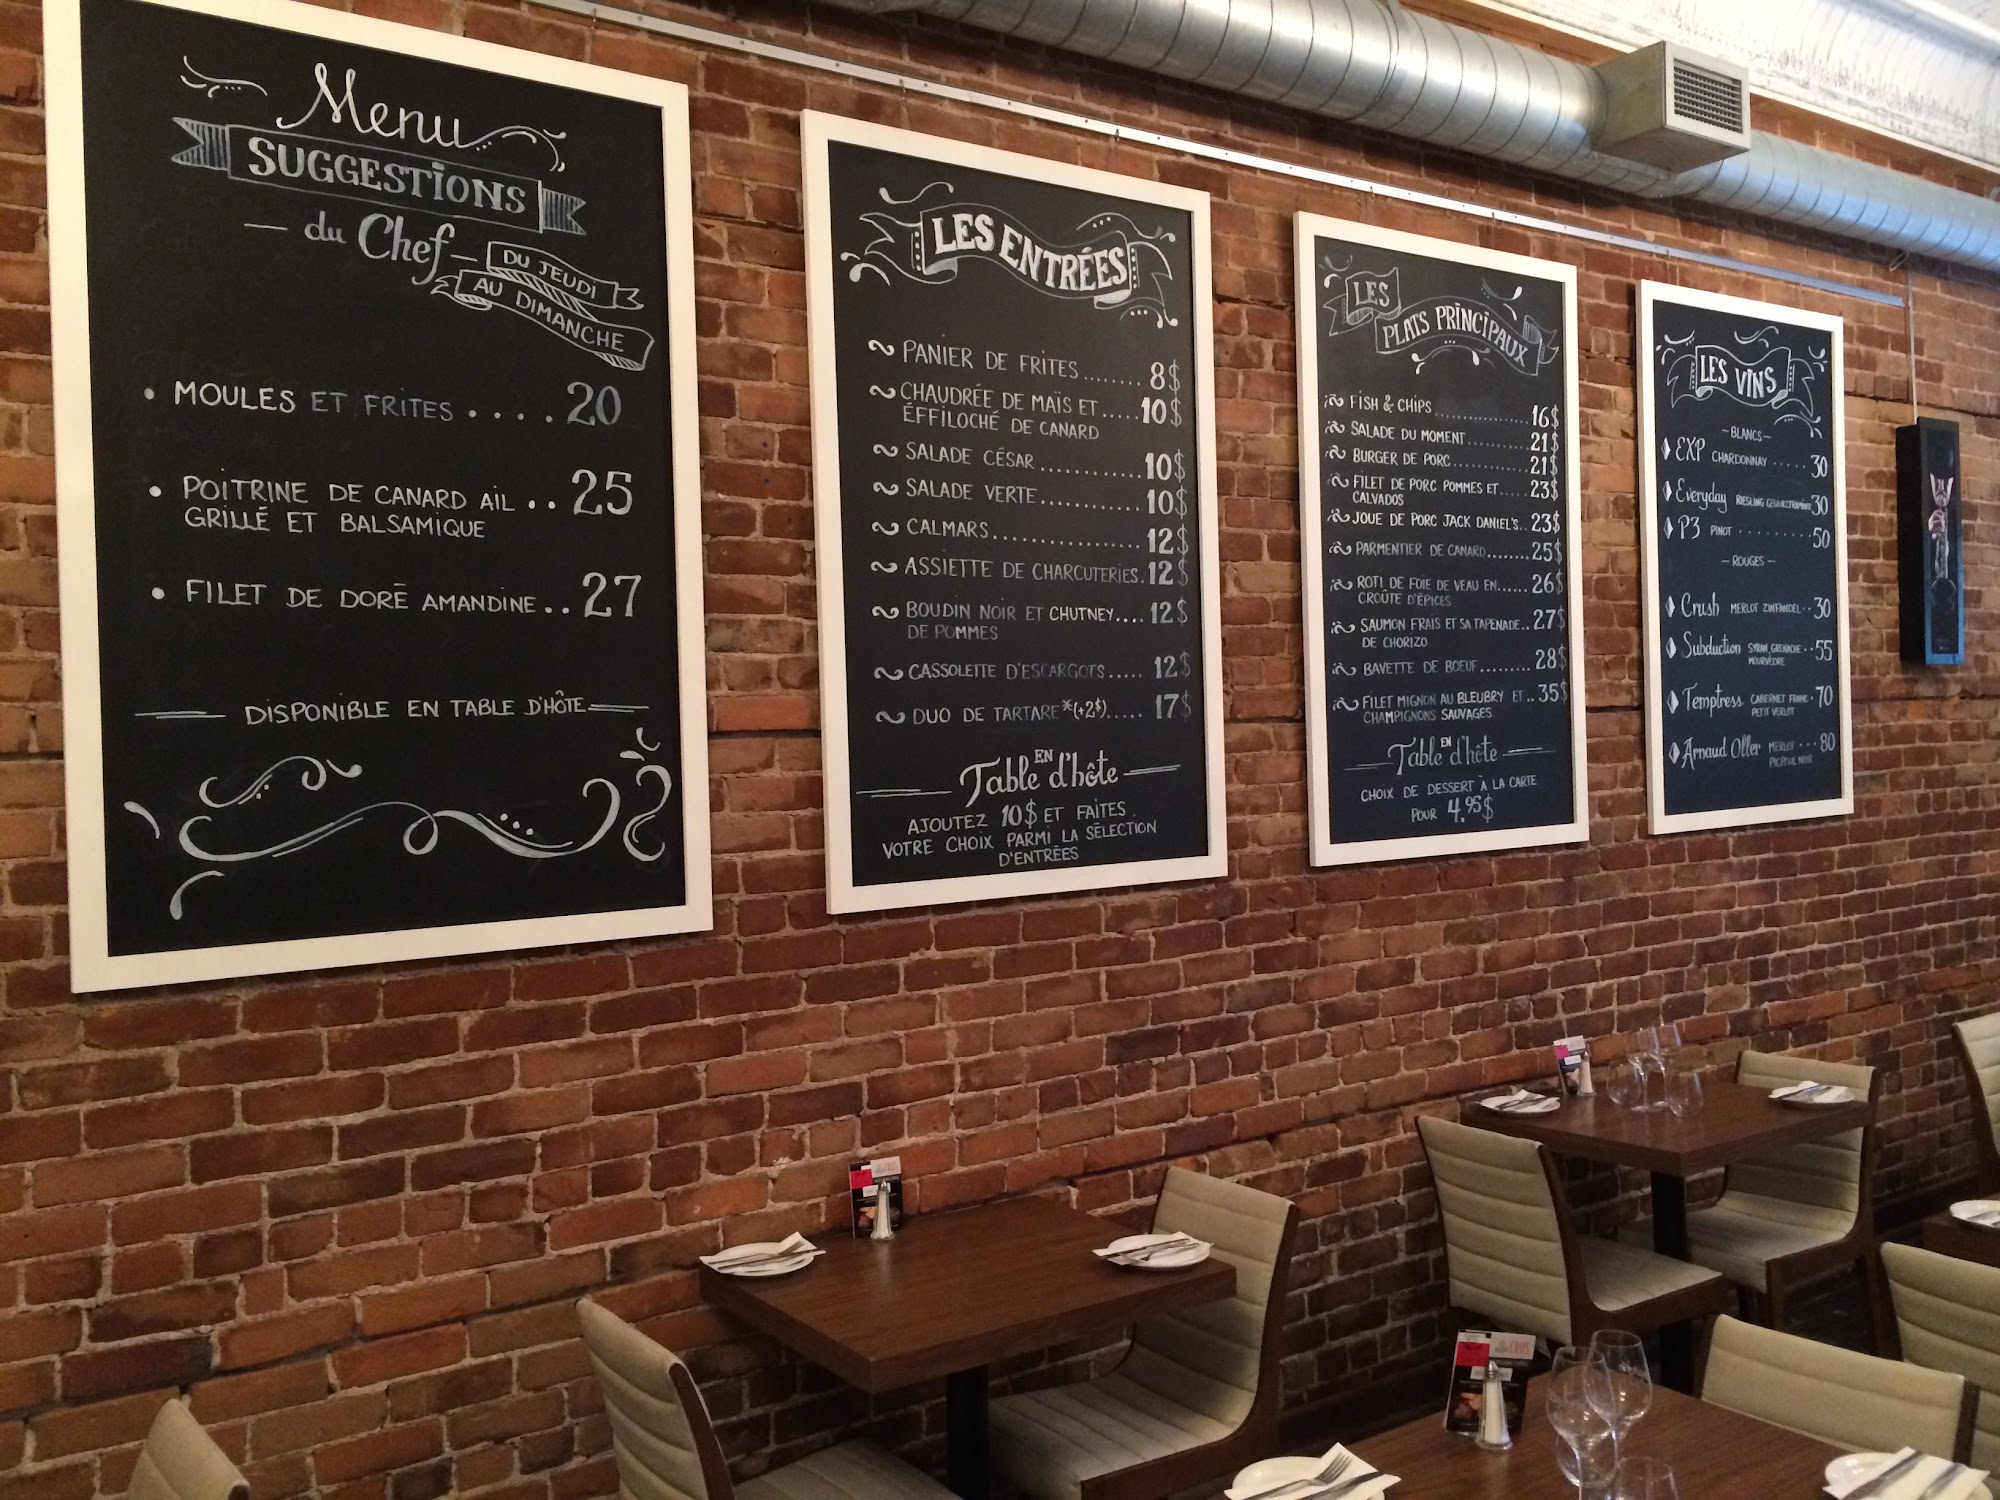 Menu
SUGGESTIONS
— du Chef —
DU JEUDI
AU DIMANCHE
• MOULES ET FRITES .... 20
• POITRINE DE CANARD AIL .. 25
GRILLÉ ET BALSAMIQUE
• FILET DE DORÉ AMANDINE .. 27
DISPONIBLE EN TABLE D'HÔTE
LES ENTRÉES
PANIER DE FRITES ........ 8$
CHAUDRÉE DE MAÏS ET ..... 10$
ÉFFILOCHÉ DE CANARD
SALADE CÉSAR ............ 10$
SALADE VERTE ............ 10$
CALMARS ................. 12$
ASSIETTE DE CHARCUTERIES. 12$
BOUDIN NOIR ET CHUTNEY.... 12$
DE POMMES
CASSOLETTE D'ESCARGOTS..... 12$
DUO DE TARTARE*(+2$)..... 17$
EN
Table d'hôte
AJOUTEZ 10$ ET FAITES
VOTRE CHOIX PARMI LA SÉLECTION
D'ENTRÉES
LES
PLATS PRINCIPAUX
FISH & CHIPS .............. 16$
SALADE DU MOMENT .......... 21$
BURGER DE PORC ............ 21$
FILET DE PORC POMMES ET ..... 23$
CALVADOS
JOUE DE PORC JACK DANIEL'S.. 23$
PARMENTIER DE CANARD........ 25$
ROTI DE FOIE DE VEAU EN...... 26$
CROÛTE D'ÉPICES
SAUMON FRAIS ET SA TAPENADE.. 27$
DE CHORIZO
BAVETTE DE BOEUF ......... 28$
FILET MIGNON AU BLEUBRY ET .. 35$
CHAMPIGNONS SAUVAGES
EN
Table d'hôte
CHOIX DE DESSERT À LA CARTE
POUR 4.95$
LES VINS
— BLANCS —
EXP CHARDONNAY ..... 30
Everyday RIESLING GEWURZTRAMINER 30
P3 PINOT ......... 50
— ROUGES —
Crush MERLOT ZINFANDEL .. 30
Subduction SYRAH, GRENACHE .. 55
MOURVÈDRE
Temptress CABERNET FRANC . 70
PETIT VERDOT
Arnaud Oller MERLOT ... 80
PICPOUL NOIR